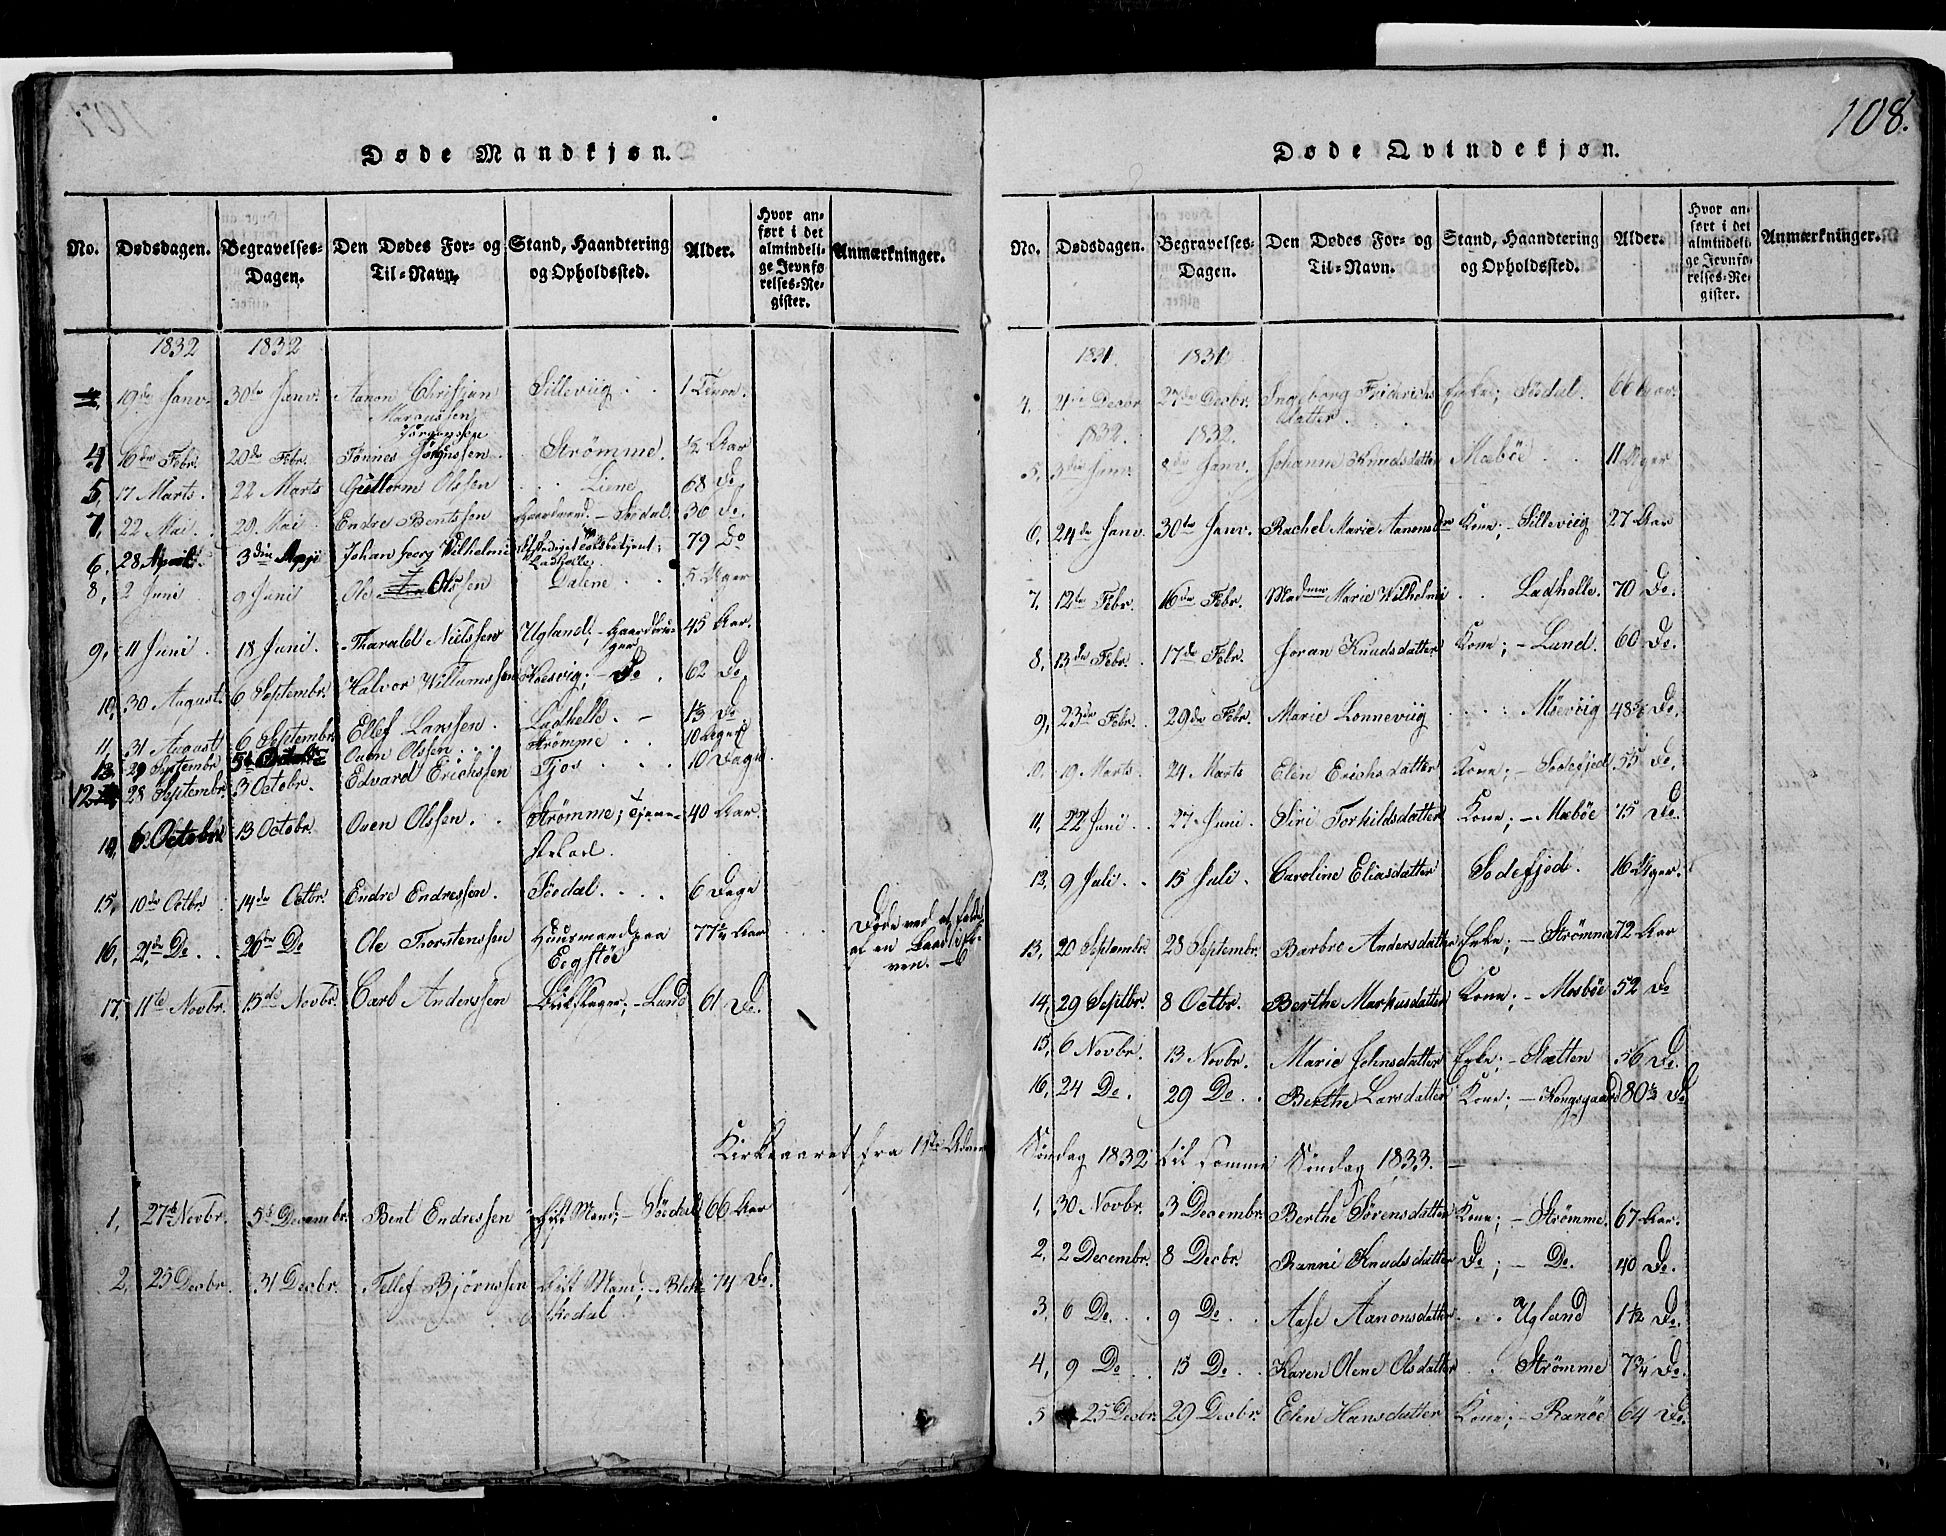 Døde Mandkjøn.
No. Dødsdagen. Begravelses-Dagen. Den Dødes For- og Til-Navn. Stand, Haandtering og Opholdssted. Alder. Hvor anført i det almindelige Jevnførelses-Register. Anmærkninger.
1832 1832
19de Janv. 30te Janv. Aanon Christian Silleviig 1
4, 16de Febr. 20de Febr. Tönnes Strømme. ½ Aar
5, 17 Marts. 22 Marts Guttorm Olssen Liene 68 Do
7, 22 Mai. 29 Mai Endre Bentssen Gaardmand. – Söedal. 36 Do.
6, 28 April. 3die Johan Georg Vilhelmi Afskediget Toldbetjent; Ladhelle 79 Do
8, 2 Juni 9 Juni Ole Olssen Dalene 5 Uger
9, 11 Juni 18 Juni. Tharald Nielssen Ugland; – Gaardbruger 45 Aar.
10, 30 August. 6 Septembr. Halvor Willumssen – Do 62 Do
11, 31 August 6 Septembr. Ellef Larssen. Ladhelle. – Do
13, 29 Septembr Ouen Olssen Strømme 10 Uger
12 28 Septembr. 3 Octobr. Edvard Erichssen Tjos 10 Dage
14, 6 Octobr 13 Octobr. Ouen Olssen. Strømme; 40 Aar.
15, 10de Octbr 14de Octbr. Endre Endressen. Söedal. 6 Dage
16, 21de Do 26de Do Ole Thorstenssen Huusmand paa Eegstöe 77½ Aar Døde ved at falde af en
17, 11te Novbr. 15de Novbr Carl Anderssen – Lund 61 Do.
Kirkeaaret fra 1ste Advent
1, 27de Novbr. 5te Decembr. Bent Endressen Gift Mand; – Söedal 66 Aar
2, 25 Decbr. 31 Decbr. Tellef Bjørnssen Gift Mand; – 74 Do.
108.
Døde Qvindekjøn.
No. Dødsdagen. Begravelses-Dagen. Den Dødes For- og Til-Navn. Stand, Haandtering og Opholdssted. Alder. Hvor anført i det almindelige Jevnførelses-Register. Anmærkninger.
1831 1831
4, Decbr 27de Decbr. Ingeborg Fridrichsdatter Enke; Södal. 66 Aar.
1832. 1832.
5, 3die Janv. 8de Janv. Johanne Knudsdatter Mæbøe 11 Uger
6, 24de Janv. 30te Janv. Rachel Marie Aanonsdtr Kone; – Sillevig 27 Aar
7, 12te Febr. 16de Febr. Madame Marie Wilhelmi Ladhelle. 70 Do.
8, 13de Febr. 17de Febr. Joran Knudsdatter Kone; – Lund. 60 Do.
9, 23de Febr. 29de Febr. Marie Lonneviig Do.
10, 19 Marts 24 Marts Elen Erichsdatter Kone; – Södefjed 55 Do.
11, 22 Juni 27 Juni Siri Torkildsdatter Kone; – Mæbøe 75 Do.
12, 9 Juli 15 Juli. Caroline Eliasdatter Sodefjed. 16 Uger.
13, 20 Septembr. 28 Septembr. Barbro Andersdatter Enke; – Strømme 72 Aar
14, 29 Septbr. 8 Octbr. Berthe Markusdatter Kone; – Mosbøe 52 Do
15, 6 Novbr. 13 Novbr. Marie Johnsdatter Enke; – Slætten 56 Do.
16, 24 Do. 29 Do Berthe Larsdatter Kone; – Kongsgaard 80½ Do
Søndag 1832 til samme Søndag 1833. –
1, 30 Novbr. 3 Decembr. Berthe Sørensdatter Kone; – Strømme. 67 Aar.
2, 2 Decembr. 8 Decbr. Ranni Knudsdatter Do; – Do. 40 Do.
3, 6 Do. 9 Do Aase Aanonsdatter Ugland 1½ Do.
4, 9 Do 15 Do Karen Olene Olsdatter Strømme 7¾ Do.
5 25 Decbr. 29 Decbr. Elen Hansdatter Kone; – Ranøe 64 Do.